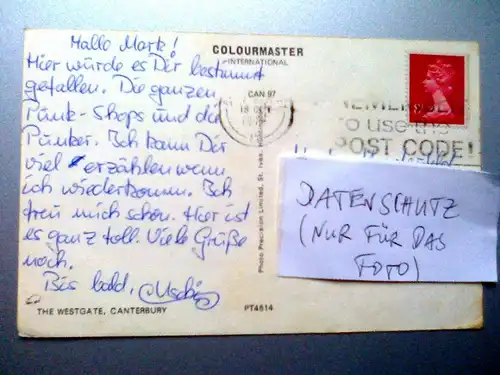 Hallo Mark!
Hier würde es Dir bestimmt
gefallen. Die ganzen
Punk-Shops und die
Punker. Ich kann Dir
viel erzählen wenn
ich wiederkomm. Ich
freu mich schon. Hier ist
es ganz toll. Viele Grüße
noch.
Bis bald,
THE WESTGATE, CANTERBURY
COLOURMASTER
INTERNATIONAL
CAN 97
to use the
POST CODE!
Photo Precision Limited, St. Ives,
PT4614
DATENSCHUTZ
(NUR FÜR DAS
FOTO)